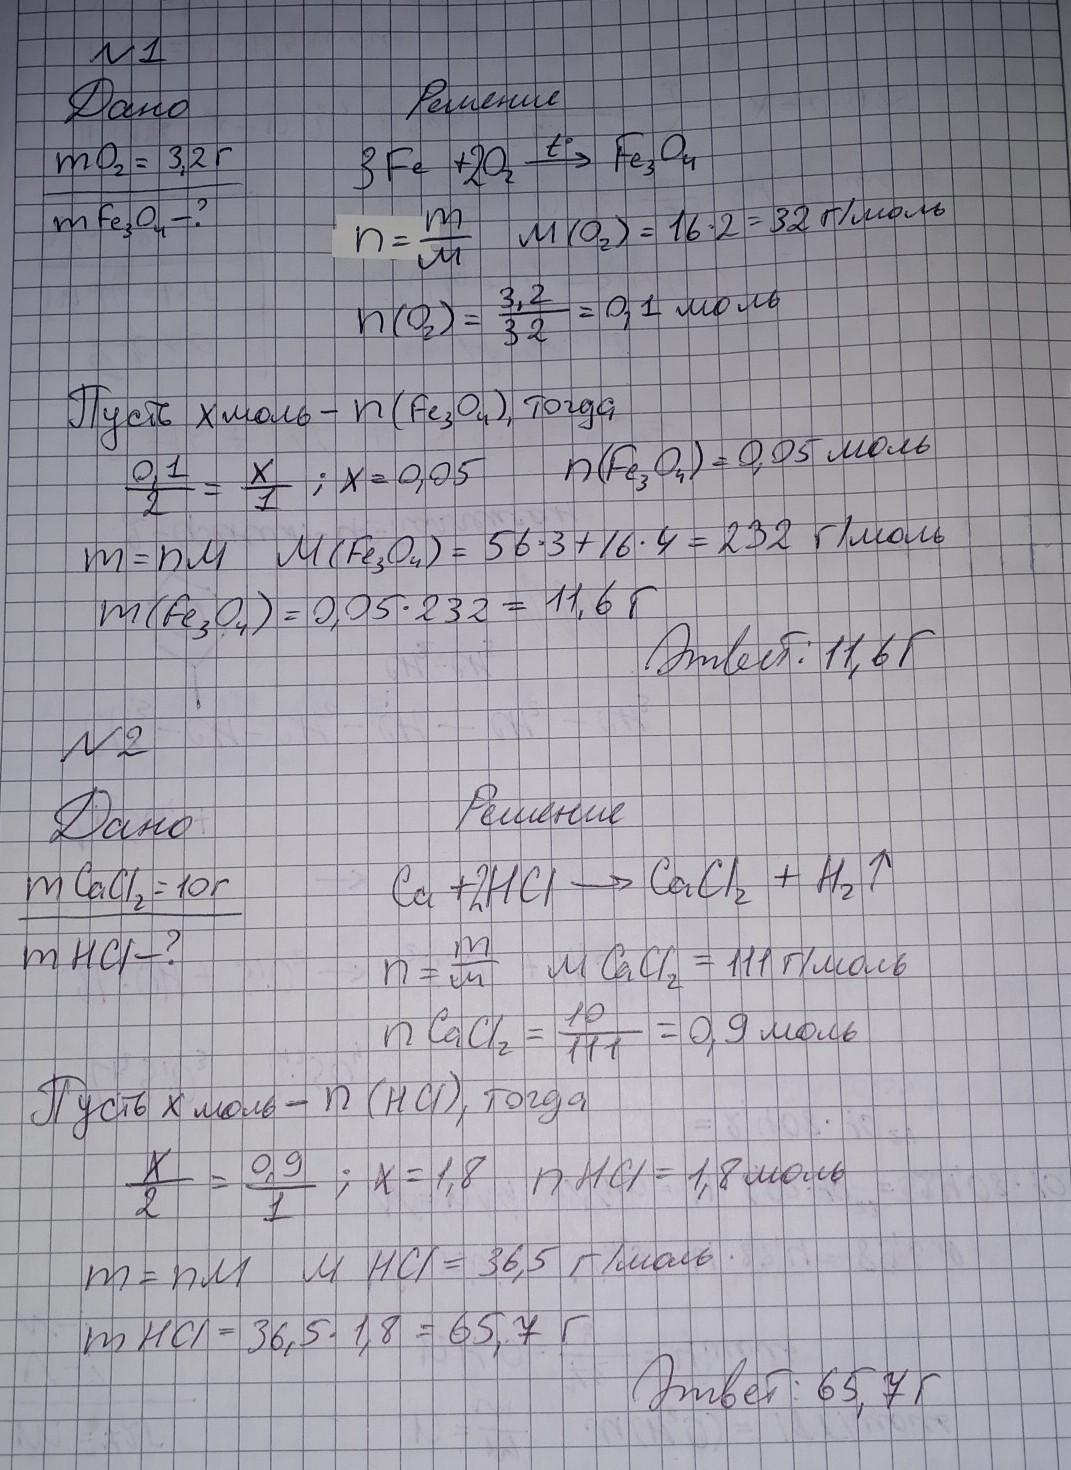 №1
Дано Решение
mO₂ = 3,2 г 3Fe + 2O₂ t°→ Fe₃O₄
mFe₃O₄ – ?
n = m/M M(O₂) = 16·2 = 32 г/моль
n(O₂) = 3,2/32 = 0,1 моль
Пусть x моль – n(Fe₃O₄), тогда
0,1/2 = x/1 ; x = 0,05 n(Fe₃O₄) = 0,05 моль
m = nM M(Fe₃O₄) = 56·3 + 16·4 = 232 г/моль
m(Fe₃O₄) = 0,05·232 = 11,6 г
Ответ: 11,6 г
№2
Дано Решение
mCaCl₂ = 10 г Ca + 2HCl → CaCl₂ + H₂↑
mHCl – ?
n = m/M M CaCl₂ = 111 г/моль
n CaCl₂ = 10/111 = 0,9 моль
Пусть x моль – n (HCl), тогда
x/2 = 0,9/1 ; x = 1,8 n HCl = 1,8 моль
m = nM M HCl = 36,5 г/моль
m HCl = 36,5·1,8 = 65,7 г
Ответ: 65,7 г